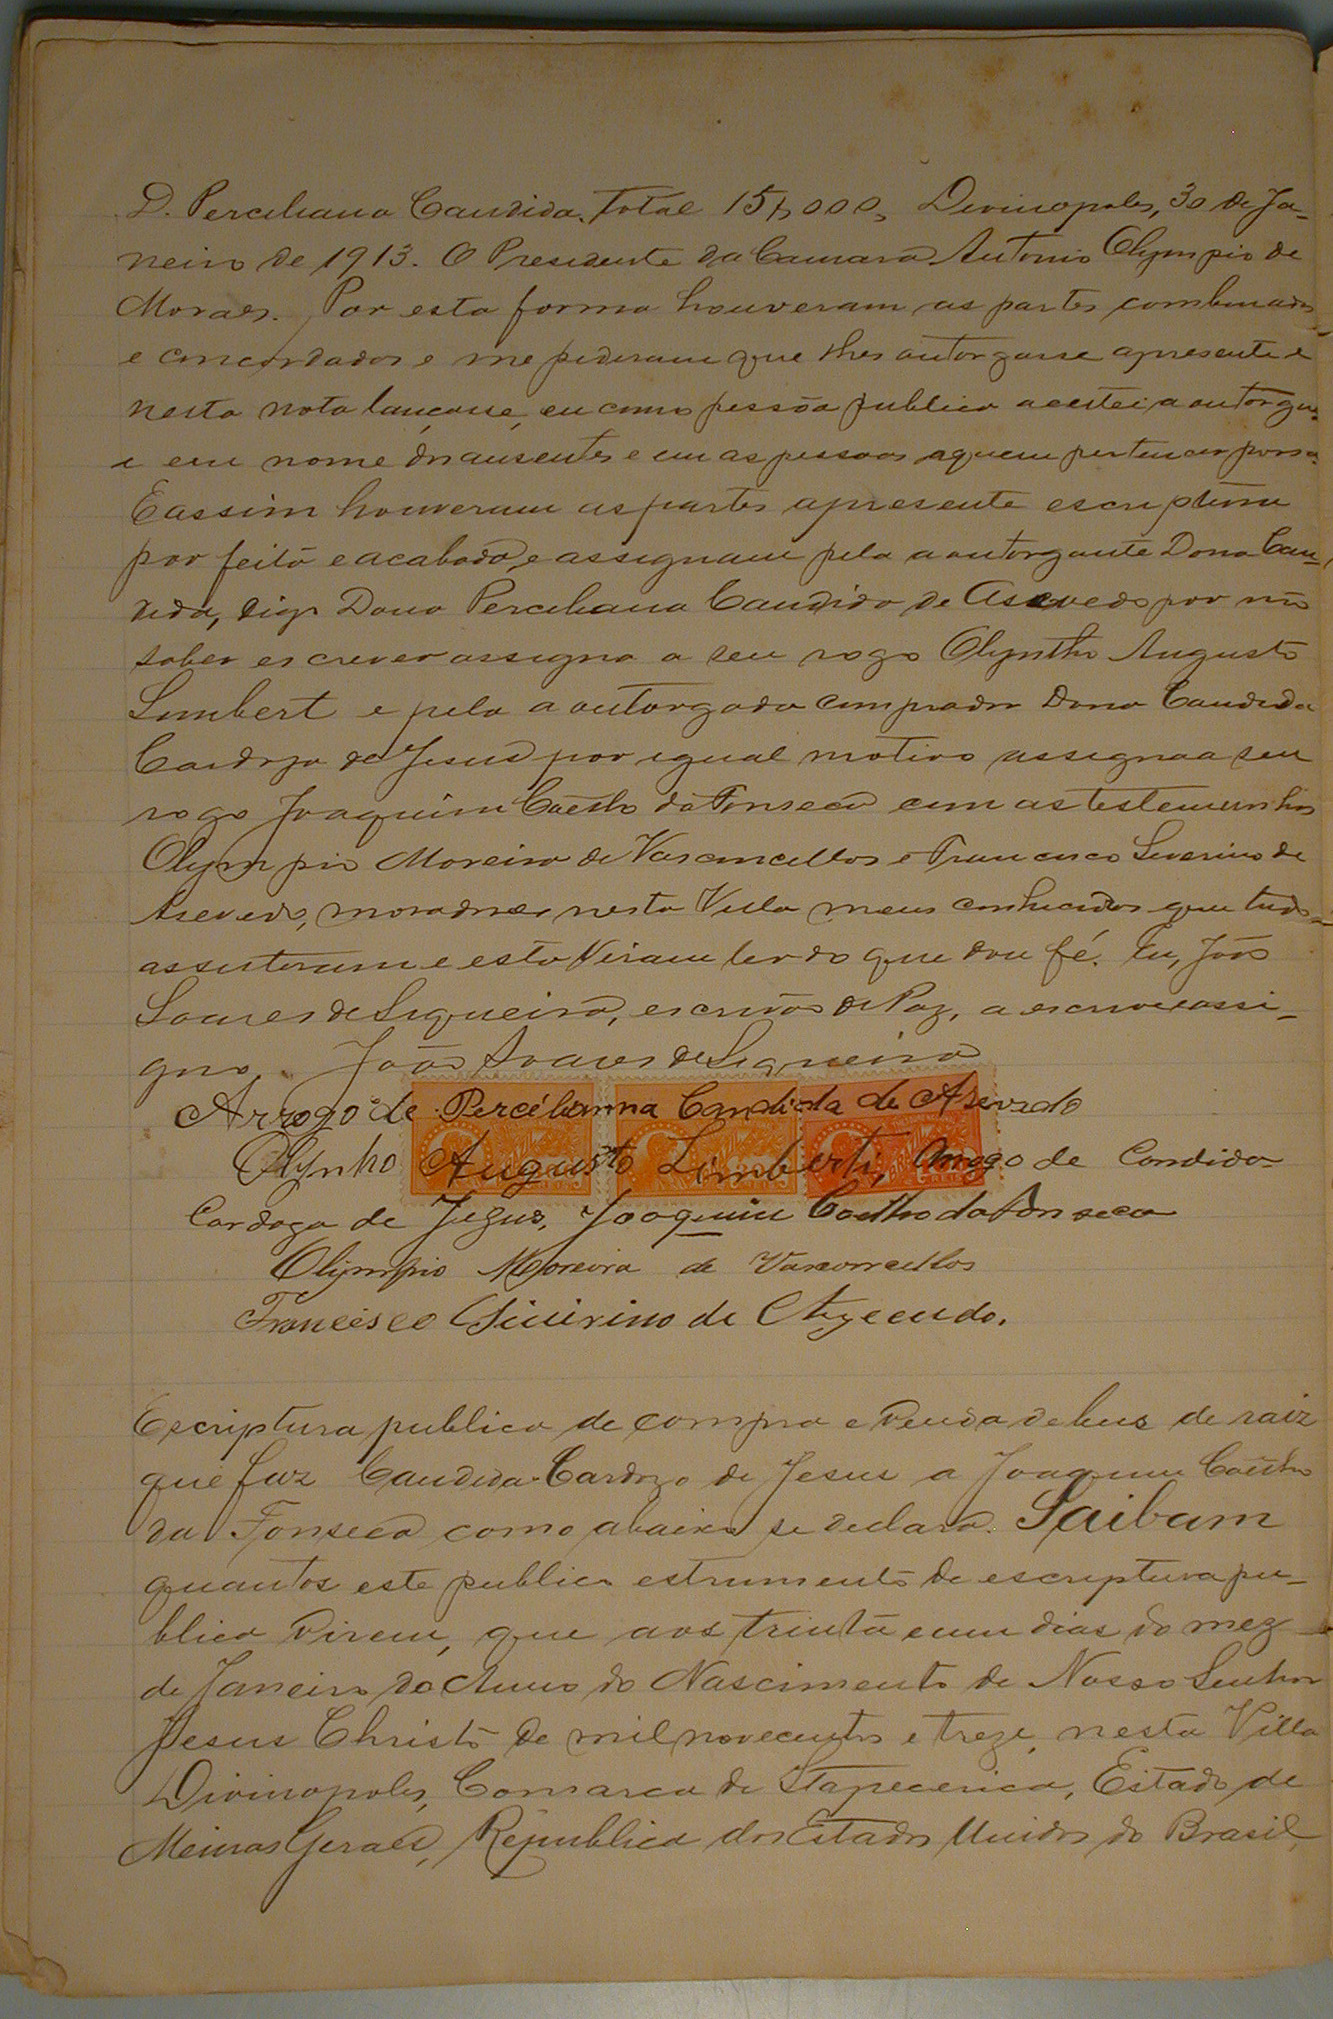 D. Perciliana Candida, Total 15$000, Divinopoles, 30 de Ja-
neiro de 1913. O Presidente da Camara Antonio Olympio de
Moraes. Por esta forma houveram as partes combinados
e concordados e me pediram que lhes outorgasse apresente e
nesta nota lançasse, eu como pessôa publica aceitei a outorgu
e em nome dos ausentes e em as pessoas aquem pertencer possa
E assim houveram as partes apresente escriptura
por feita e acabada, e assignam pela a outorgante Dona Can-
dida, digo Dona Perciliana Candida de Asevedo por não
saber escrever assigna a seu rogo Olyntho Augusto
Limbert e pela a outorgada comprador Dona Candida
Cardozo de Jesus por igual motivo assigna a seu
rogo Joaquim Coêlho da Fonseca com as testemunhas
Olympio Moreira de Vasconcellos e Francisco Severino de
Asevedo, moradores nesta Villa meus conhecidos que tudo
assistiram e esta viram ler do que dou fé. Eu, João
Soares de Siqueira, escrivão de Paz, a escrevi e assi-
gno. João Soares de Siqueira
Arrogo de Percélianna Candida de Asevedo
Olynho Augusto Limberti, Arrogo de Candida
Cardoza de Jezus, Joaquim Coelho da Fonseca
Olijmpio Moreira de Vasconcellos
Francisco Siuirino de Azecudo.
Escriptura publica de compra e venda de bens de raiz
que faz Candida Cardozo de Jesus a Joaquim Coêlho
da Fonseca como abaixo se declara. Saibam
quantos este publico estrumento de escriptura pu-
blica virem, que aos trinta e um dias do mez
de Janeiro do Anno do Nascimento de Nosso Senhor
Jesus Christo de mil novecentos e treze, nesta Villa
Divinopoles, Comarca de Itapecerica, Estado de
Minas Geraes, Republica dos Estados Unidos do Brasil,